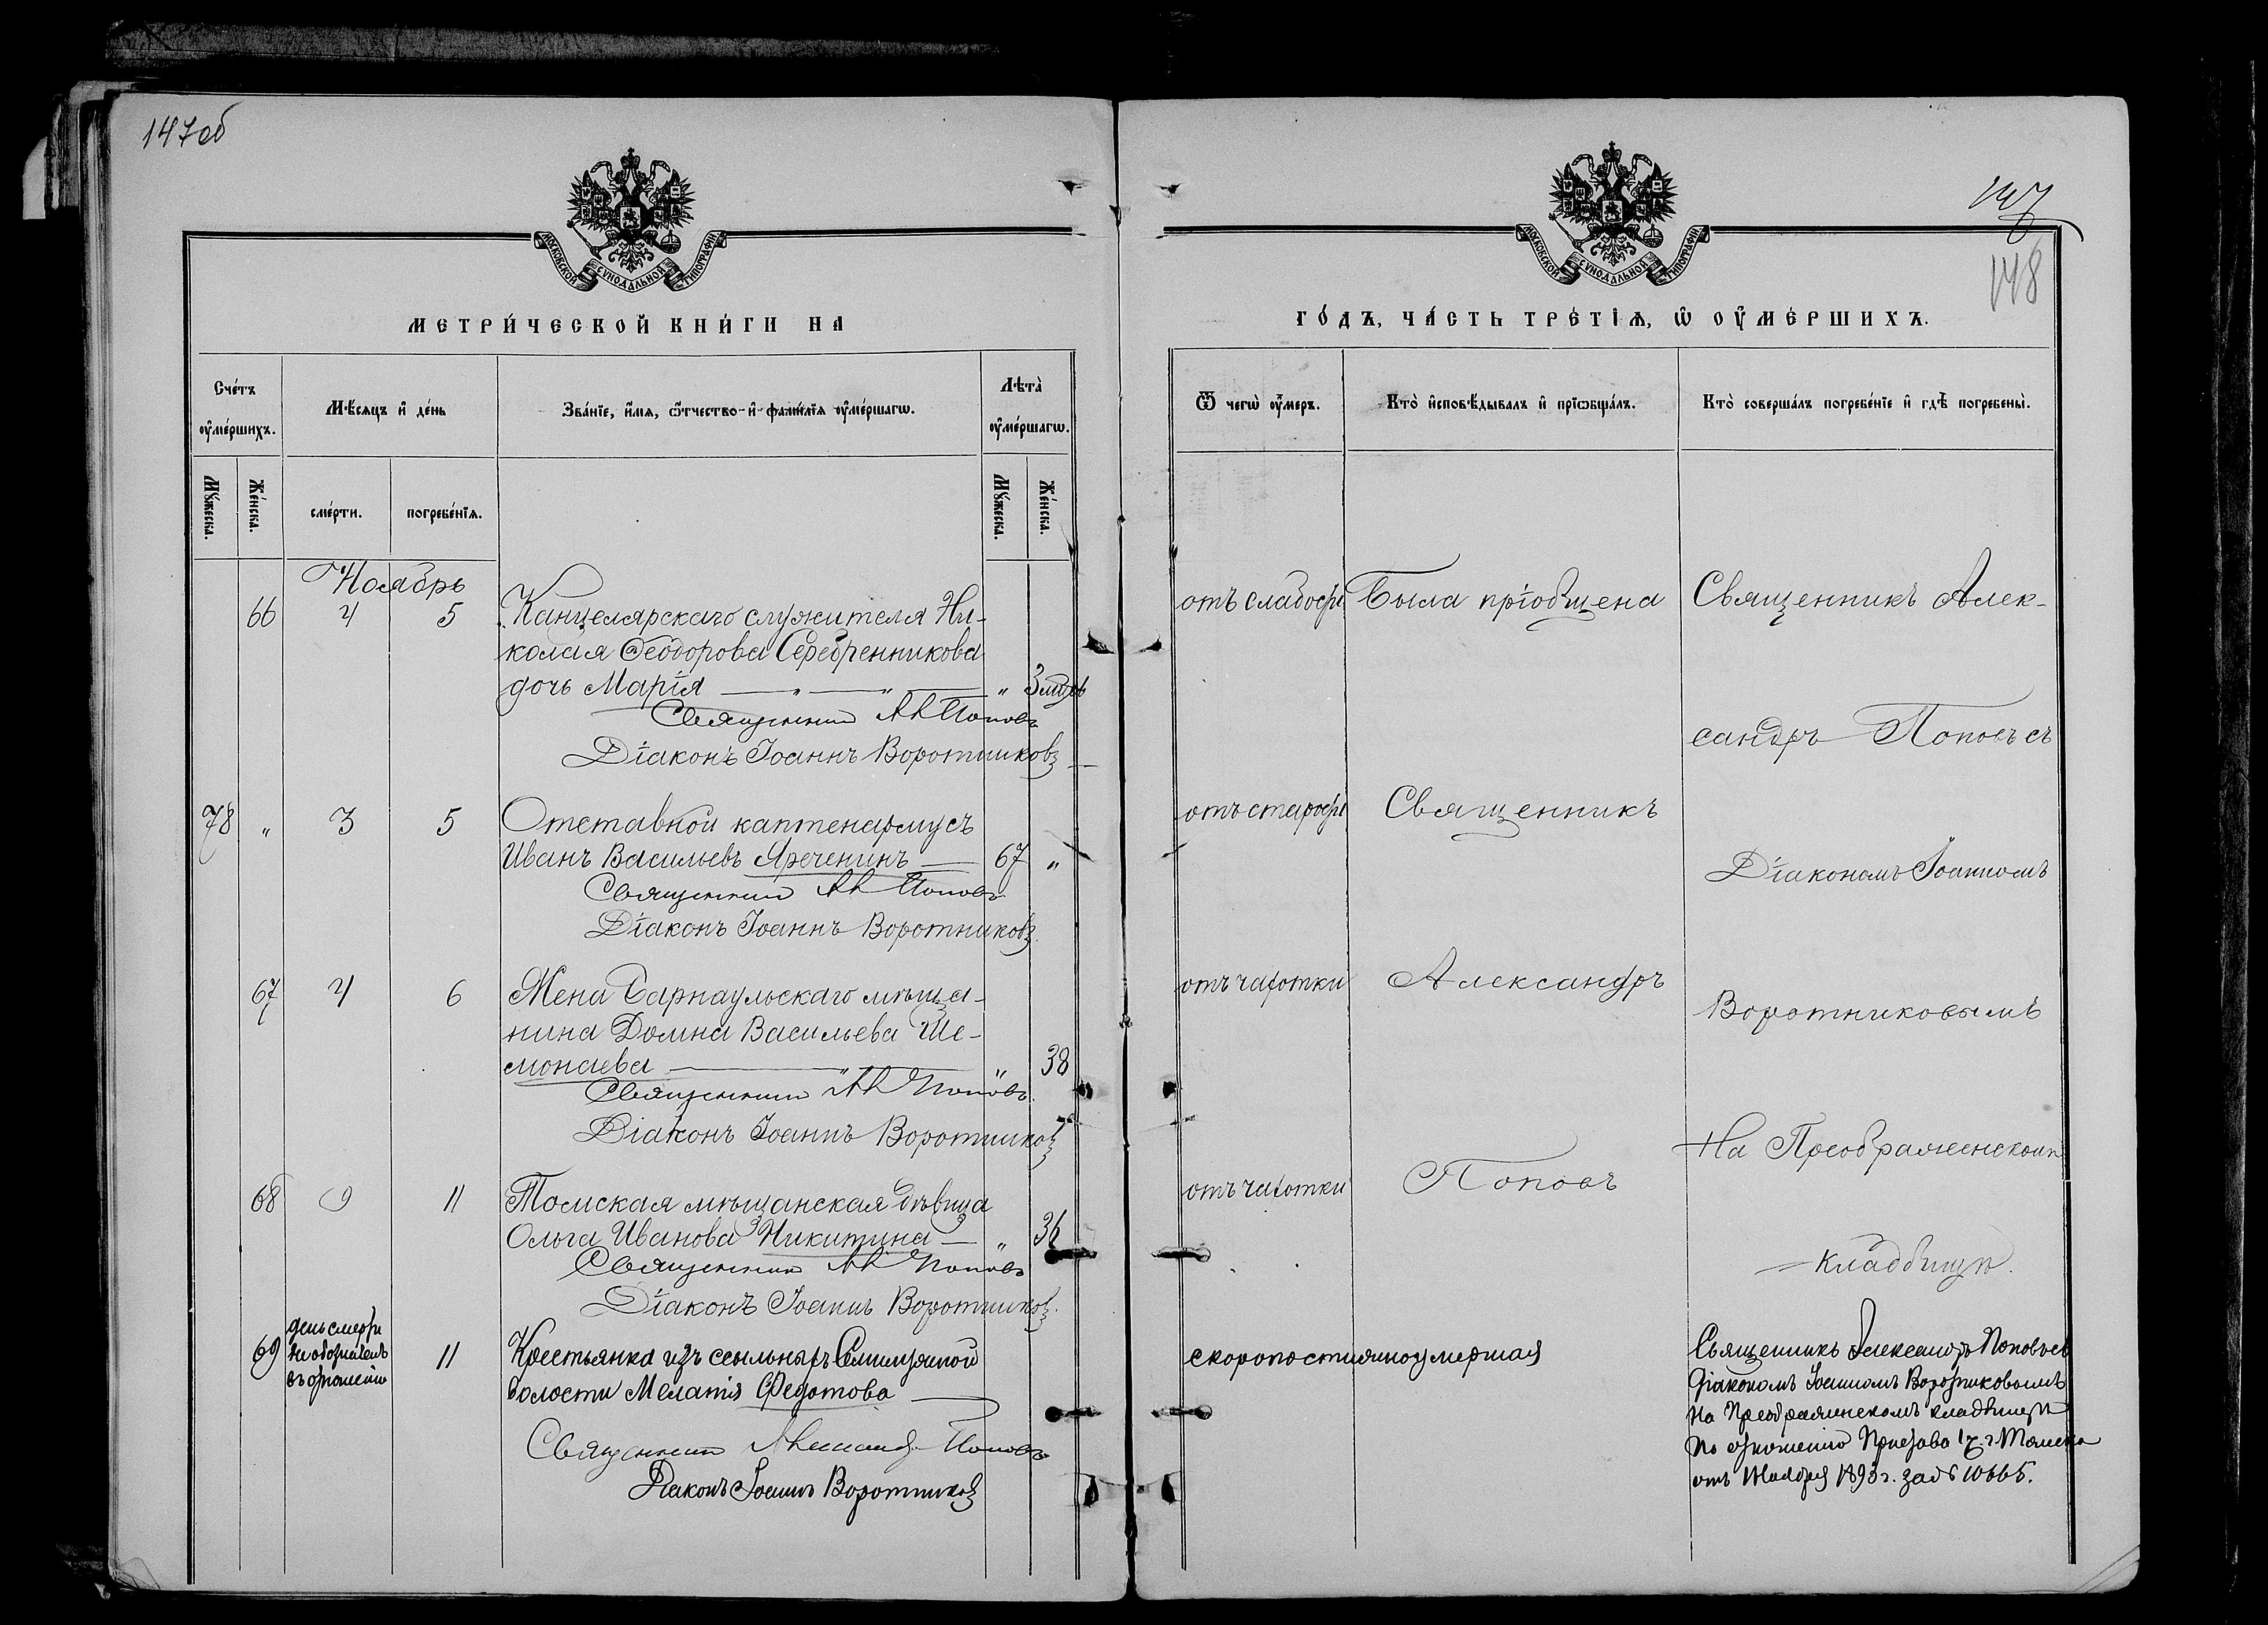 147об
МОСКОВСКОЙ СѴНОДАЛЬНОЙ ТИПОГРАФІИ
МЕТРИ́ЧЕСКОЙ КНИ́ГИ НА
Сче́тъ ᲂу҆ме́ршихъ.
Мѣ́сяцъ и҆ де́нь
Зва́нїе, и҆́мѧ, ѻ҆́тчество и҆ фами́лїѧ ᲂу҆ме́ршагѡ.
Лѣта̀ ᲂу҆ме́ршагѡ.
Мꙋ́жеска.
Же́нска.
сме́рти.
погребе́нїѧ.
Мꙋ́жеска.
Же́нска.
Ноябрь
66 4 5 Канцелярскаго служителя Ни-
колая Ѳеодорова Серебренникова
дочь Марія " 3 мцъ
Священник Ал Поповъ
Діаконъ Іоаннъ Воротниковъ
78 " 3 5 Отставной каптенармусъ
Иванъ Васильевъ Яреченинъ 67 "
Священник Ал Поповъ
Діаконъ Іоаннъ Воротниковъ
67 4 6 Жена Барнаульскаго мѣща-
нина Домна Васильева Ше-
монаева " 38
Священник Ал Поповъ
Діаконъ Іоаннъ Воротниковъ
68 9 11 Томская мѣщанская дѣвица
Ольга Иванова Никитина " 36
Священник Ал Поповъ
Діаконъ Іоаннъ Воротниковъ
день смерти
не обозначенъ
въ отношеніи
69 11 Крестьянка изъ ссыльныхъ
волости Меланія Федотова
Священник Александр Поповъ
Діаконъ Іоаннъ Воротниковъ
147
148
МОСКОВСКОЙ СѴНОДАЛЬНОЙ ТИПОГРАФІИ
ГО́ДЪ, ЧА́СТЬ ТРЕ́ТІѦ, Ѡ҆ ОУ҆МЕ́РШИХЪ.
Ѿ чегѡ̀ ᲂу҆́меръ.
Кто̀ и҆сповѣ́дывалъ и҆ прїѡбща́лъ.
Кто̀ соверша́лъ погребе́нїе и҆ гдѣ̀ погребены̀.
отъ слабости Была пріобщена Священникъ Алек-
сандръ Поповъ съ
отъ старости Священникъ
Діакономъ Іоанномъ
отъ чахотки Александръ
Воротниковымъ
На Преображенскомъ
отъ чахотки Поповъ
кладбищѣ.
скоропостижно умершая
Священникъ Александръ Поповъ съ
Діакономъ Іоанномъ Воротниковымъ
на Преображенскомъ кладбищѣ
по отношенію Пристава г. Томска
отъ Ноября 1893 г. за № 10665.